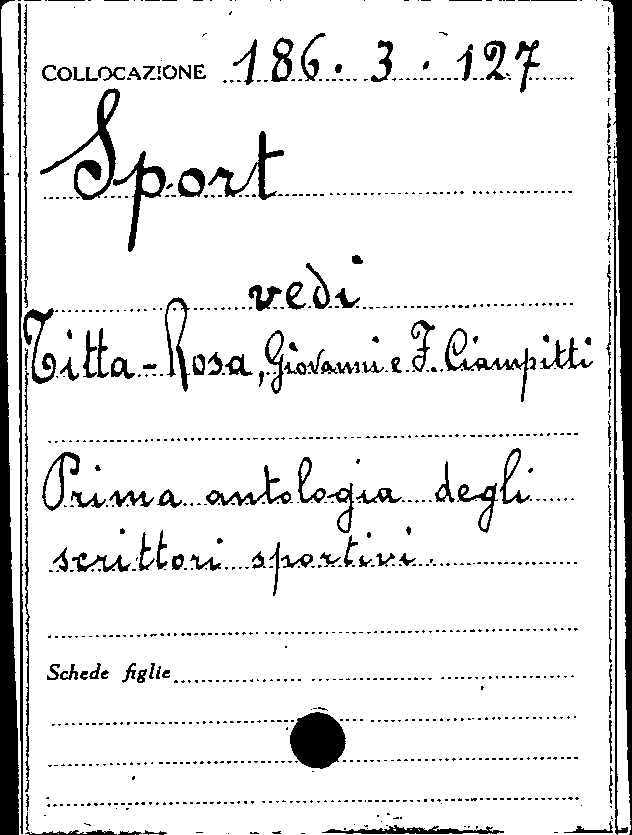 COLLOCAZIONE 186. 3. 127
Sport
vedi
Titta-Rosa, Giovanni e F. Ciampitti
Prima antologia degli
scrittori sportivi.
Schede figlie